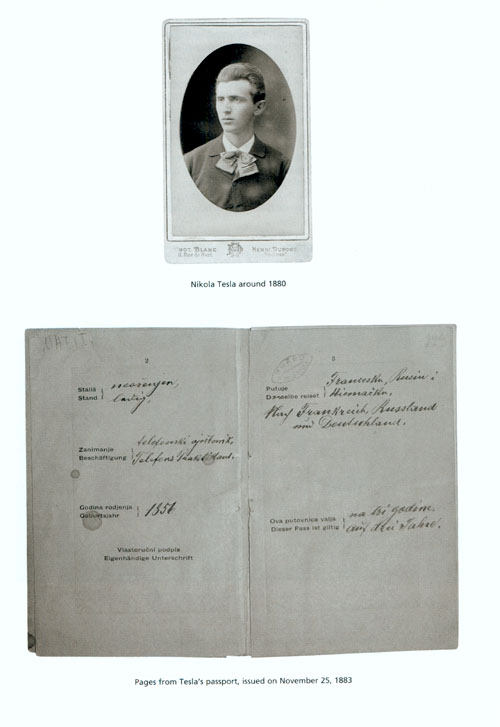 Nikola Tesla around 1880
2
Stališ
Stand
neoženjen,
ledig.
Zanimanje
Beschäftigung
telefonski
Telefons
Godina rodjenja
Geburtsjahr
1856
Vlastoručni podpis
Eigenhändige Unterschrift
3
Putuje
Derselbe reiset
Francesku, Rusiu i
Niemačku.
Nach Frankreich, Russland
und Deutschland.
Ova putovnica valja
Dieser Pass ist giltig
na tri godine.
auf drei Jahre.
Pages from Tesla's passport, issued on November 25, 1883